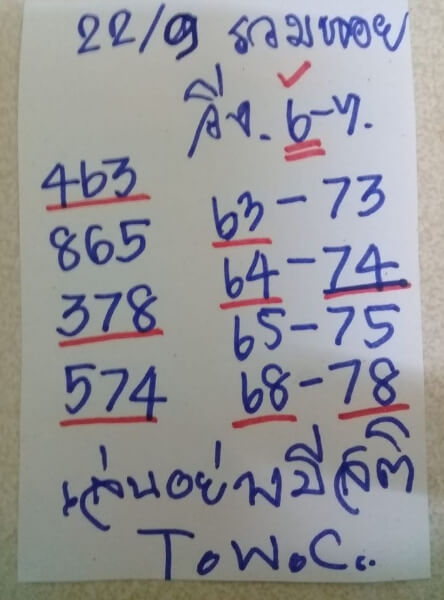 22/9 รวมหอย
วิ่ง. 6-7.
463
865
378
574
63-73
64-74
65-75
68-78
เล่นอย่างมีสติ
T.W.C..